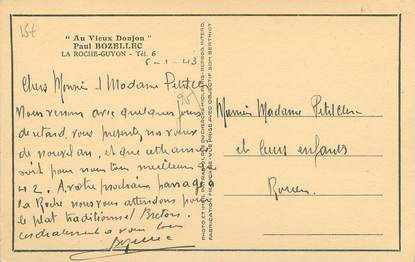 " Au Vieux Donjon "
Paul BOZELLEC
LA ROCHE-GUYON - Tél. 6
6-1-43
Chers Monsieur et Madame Petitclerc
Nous venons avec quelques jours
de retard, vous présenter nos vœux
de nouvel an, et que cette année
soit pour nous tous meilleure que
42. A votre prochain passage à
la Roche nous vous attendons pour
le plat traditionnel Breton.
Cordialement à vous tous
Bozellec
Madame Petitclerc
et leurs enfants
Rouen